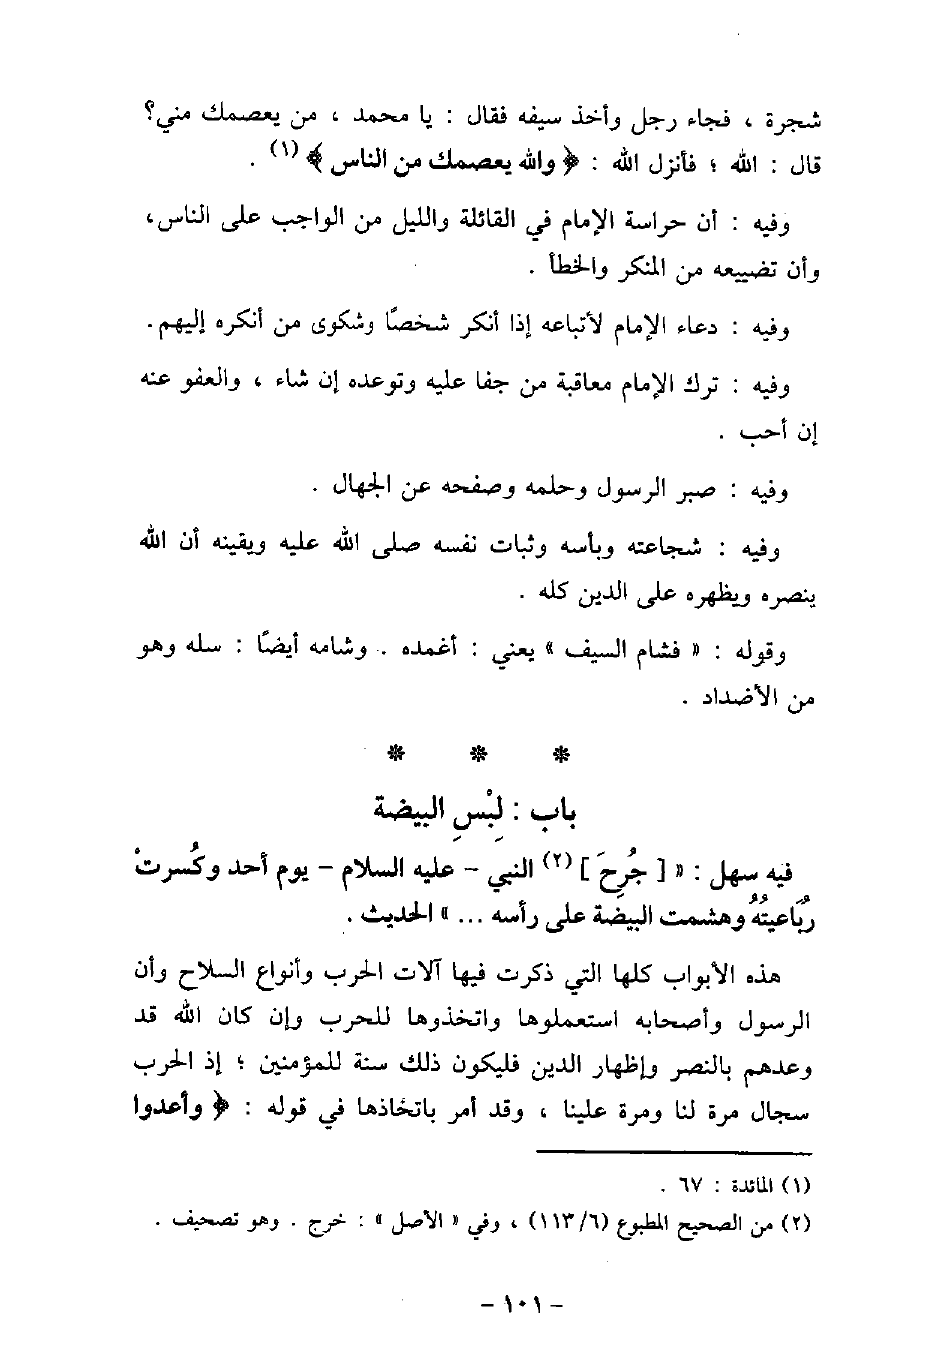 شجرة ، فجاء رجل وأخذ سيفه فقال : يا محمد ، من يعصمك مني؟
قال : الله ؛ فأنزل الله : ﴿ والله يعصمك من الناس ﴾ (١) .
وفيه : أن حراسة الإمام في القائلة والليل من الواجب على الناس،
وأن تضييعه من المنكر والخطأ .
وفيه : دعاء الإمام لأتباعه إذا أنكر شخصًا وشكوى من أنكره إليهم.
وفيه : ترك الإمام معاقبة من جفا عليه وتوعده إن شاء ، والعفو عنه
إن أحب .
وفيه : صبر الرسول وحلمه وصفحه عن الجهال .
وفيه : شجاعته وبأسه وثبات نفسه صلى الله عليه ويقينه أن الله
ينصره ويظهره على الدين كله .
وقوله : « فشام السيف » يعني : أغمده . وشامه أيضًا : سله وهو
من الأضداد .
* * *
باب : لِبْسِ البيضة
فيه سهل : « [ جُرِحَ ] (٢) النبي - عليه السلام - يوم أحد وكُسرتْ
رُبَاعيتُهُ وهشمت البيضة على رأسه ... » الحديث .
هذه الأبواب كلها التي ذكرت فيها آلات الحرب وأنواع السلاح وأن
الرسول وأصحابه استعملوها واتخذوها للحرب وإن كان الله قد
وعدهم بالنصر وإظهار الدين فليكون ذلك سنة للمؤمنين ؛ إذ الحرب
سجال مرة لنا ومرة علينا ، وقد أمر باتخاذها في قوله : ﴿ وأعدوا
(١) المائدة : ٦٧ .
(٢) من الصحيح المطبوع (٦/ ١١٣) ، وفي « الأصل » : خرج . وهو تصحيف .
- ١٠١ -